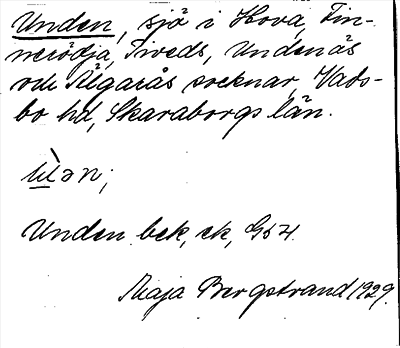 Unden, sjö i Hova, Fin-
nerödja, Tiveds, Undenäs
och Älgarås socknar, Vads-
bo hd, Skaraborgs län.
Unden bek, ek,
Maja Bergstrand 1929.